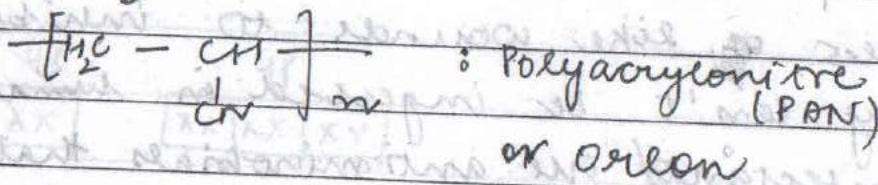 -[H₂C - CH-]n : Polyacrylonitre
CN (PAN)
or Orlon